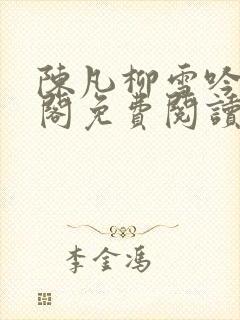 陳凡柳雪吟
閣免費閱讀
李金馮